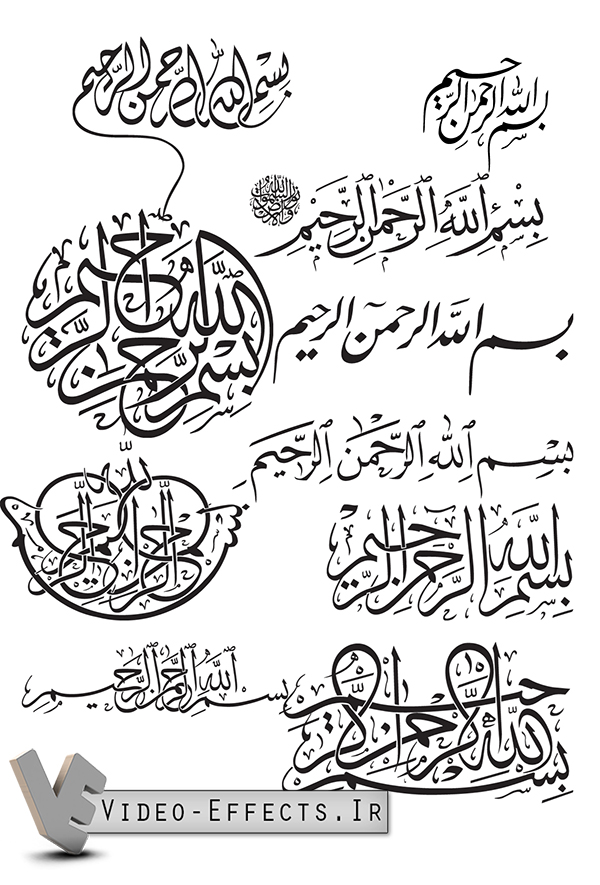 بسم الله الرحمن الرحيم
بسم الله الرحمن الرحيم
بِسْمِ اللَّهِ الرَّحْمٰنِ الرَّحِيْمِ
بسم الله الرحمن الرحيم
بسم الله الرحمن الرحيم
بِسْمِ اللهِ الرَّحْمٰنِ الرَّحِيمِ
بسم الله الرحمن الرحيم
بسم الله الرحمن الرحيم
بسم الله الرحمن الرحيم
بسم الله الرحمن الرحيم
VE VIDEO-EFFECTS.IR